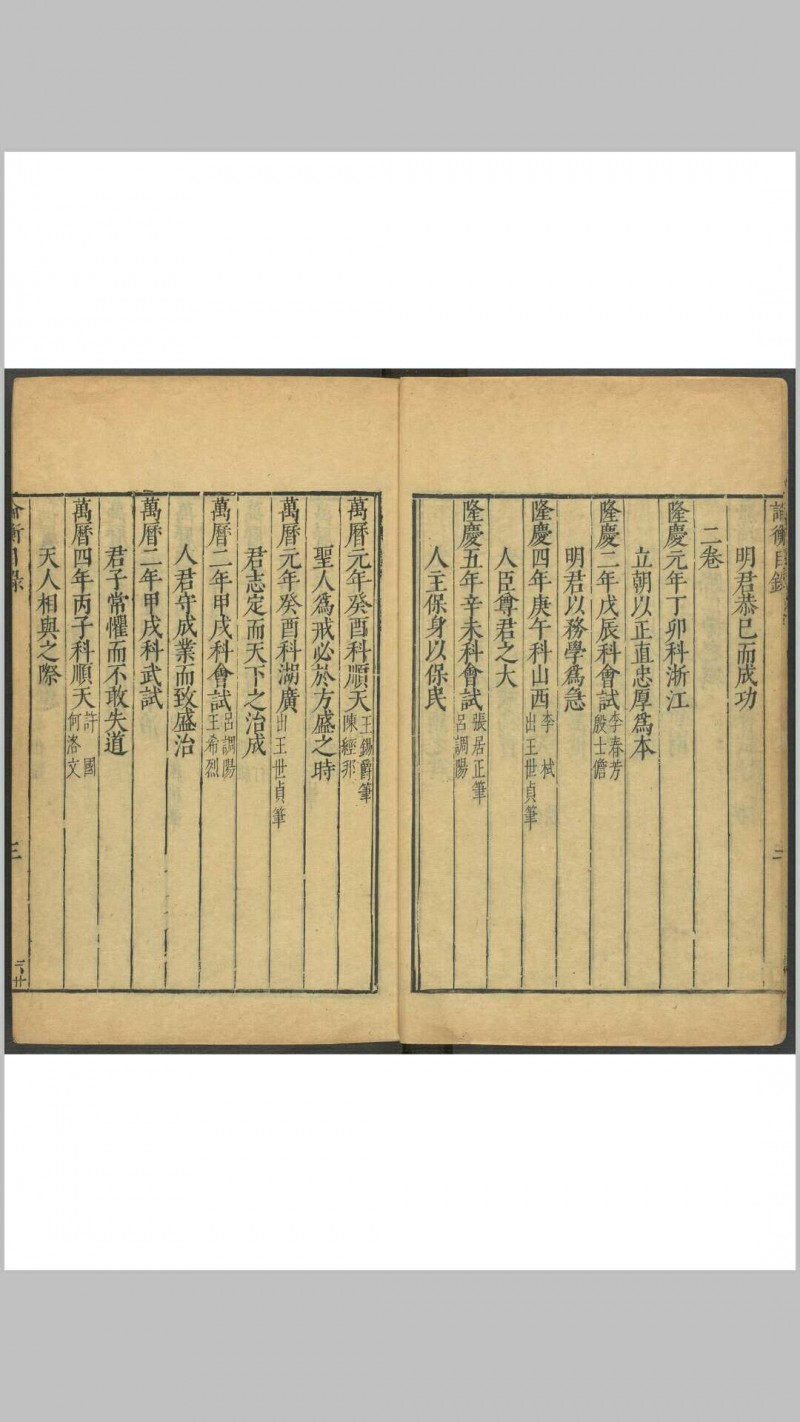 論衡目錄
二
明君恭己而成功
二卷
隆慶元年丁卯科浙江
立朝以正直忠厚爲本
隆慶二年戊辰科會試李春芳
殷士儋
明君以務學爲急
隆慶四年庚午科山西李 栻
出王世貞筆
人臣尊君之大
隆慶五年辛未科會試張居正筆
呂調陽
人主保身以保民
萬曆元年癸酉科順天王錫爵筆
陳經邦
聖人爲戒必於方盛之時
萬曆元年癸酉科湖廣出王世貞筆
君志定而天下之治成
萬曆二年甲戌科會試呂調陽
王希烈
人君守成業而致盛治
萬曆二年甲戌科武試
君子常懼而不敢失道
萬曆四年丙子科順天許 國
何洛文
天人相與之際
三